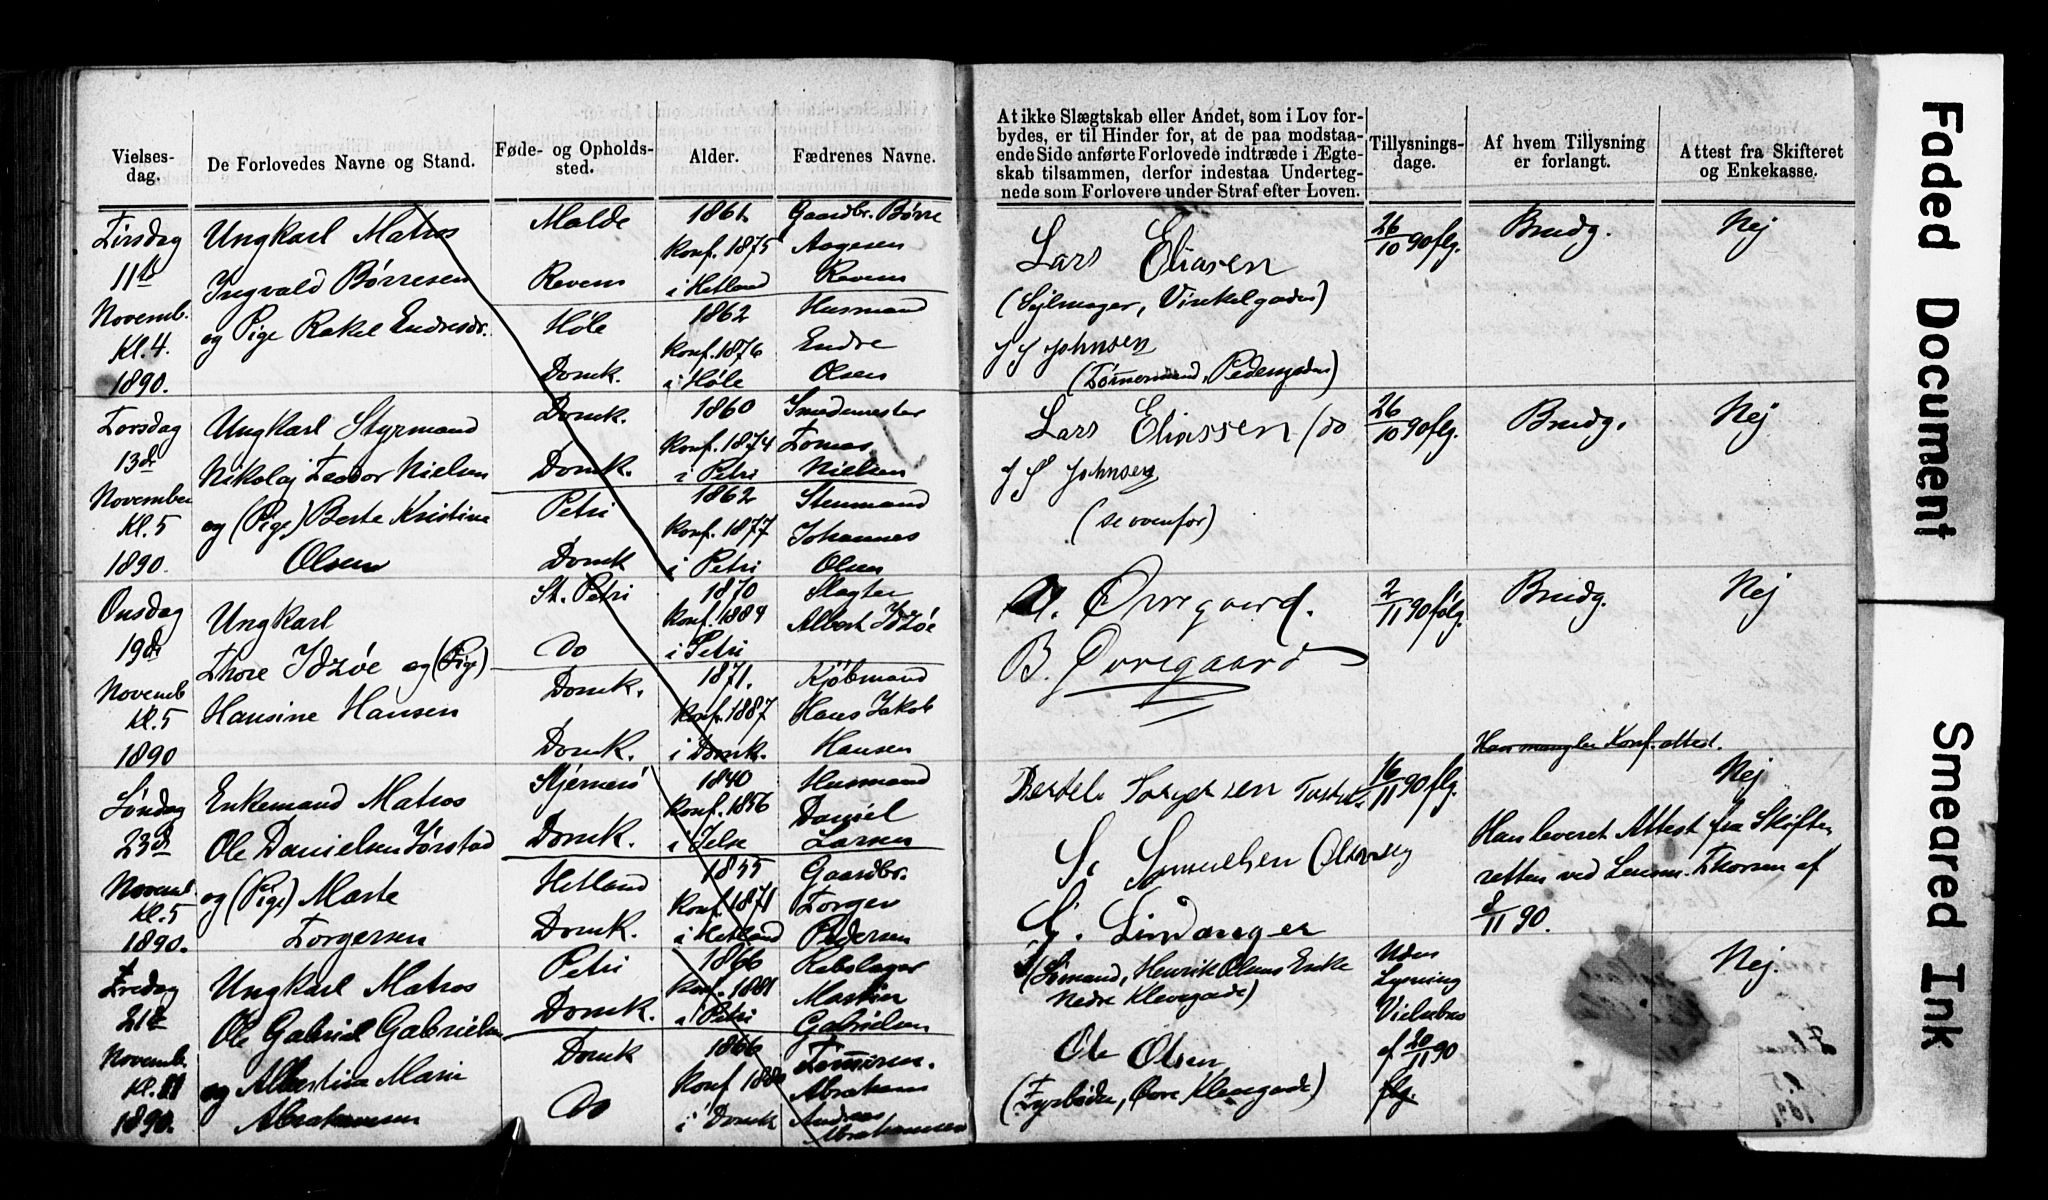 Vielses-
dag.
De Forlovedes Navne og Stand.
Føde- og Opholds-
sted.
Alder.
Fædrenes Navne.
At ikke Slægtskab eller Andet, som i Lov for-
bydes, er til Hinder for, at de paa modstaa-
ende Side anførte Forlovede indtræde i Ægte-
skab tilsammen, derfor indestaa Underteg-
nede som Forlovere under Straf efter Loven.
Tillysnings-
dage.
Af hvem Tillysning
er forlangt.
Attest fra Skifteret
og Enkekasse.
Tirsdag
11te
Novemb.
Kl. 4.
1890.
Ungkarl Matros
Ingvald Børresen
og Pige Rakel Endresdr.
Malde
Revem
Høle
Domk.
1861
Konf. 1875
i Hetland
1862
Konf. 1876
i Høle
Gaardbr. Børre
Aagesen
Revem
Husmand
Endre
Olsen
Lars Eliasen
(Sejlmager, Vinkelgaden)
J S Johnsen
(Tømmermand, Pedersgaden)
26/10 90 flg.
Brudg.
Nej
Torsdag
13de
November
Kl. 5
1890.
Ungkarl Styrmand
Nikolaj Teodor Nielsen
og (Pige) Berte Kristine
Olsen
Domk.
Domk.
Petri
Domk
1860
Konf. 1874
i Petri
1862
Konf. 1877
i Petri
Smedemester
Tomas
Nielsen
Stenmand
Johannes
Olsen
Lars Eliassen (do
J S Johnsen
(se ovenfor)
26/10 90 flg.
Brudg.
Nej
Onsdag
19de
Novemb
Kl. 5
1890
Ungkarl
Thore Idzøe og (Pige)
Hansine Hansen
St. Petri
Do
Domk.
Domk.
1870
Konf. 1884
i Petri
1871.
Konf. 1887
i Domk.
Slagter
Albert Idzøe
Kjøbmand
Hans Jakob
Hansen
A. Ovregaard.
B. Ovregaard
2/11 90 følg.
Brudg.
Nej
Søndag
23de
Novemb.
Kl. 5
1890.
Enkemand Matros
Ole Danielsen Jørstad
og (Pige) Marte
Torgersen
Stjernerø
Domk.
Hetland
Domk.
1840
Konf. 1856
i Jelse
1855
Konf. 1871
i Hetland
Husmand
Daniel
Larsen
Gaardbr.
Torger
Pedersen
Bertel
S. Samuelsen
G. Lindanger
16/11 90 flg.
Han mangler Konf. attest.
Nej
Han leveret Attest fra Skifte-
retten ved Lensm. Thorsen af
8/11 90.
Fredag
21de
Novemb.
Kl. 11
1890.
Ungkarl Matros
Ole Gabriel Gabrielsen
og Albertine Marie
Abrahamsen
Petri
Domk.
Domk
Do
1866
Konf. 1881
i Petri
1866
Konf 1880
i Domk
Rebslager
Martin
Gabrielsen
Tømmerm.
Abraham
Andreas
Abrahamsen
(Sømand, Henrik Olsens Enke
Nedre Klevegade)
Ole Olsen
(Fyrbøder, Øvre Klevegade)
Uden
Lysning
Vielsesbrev
af 20/11 90
flg.
Nej.
Faded Document
Smeared Ink